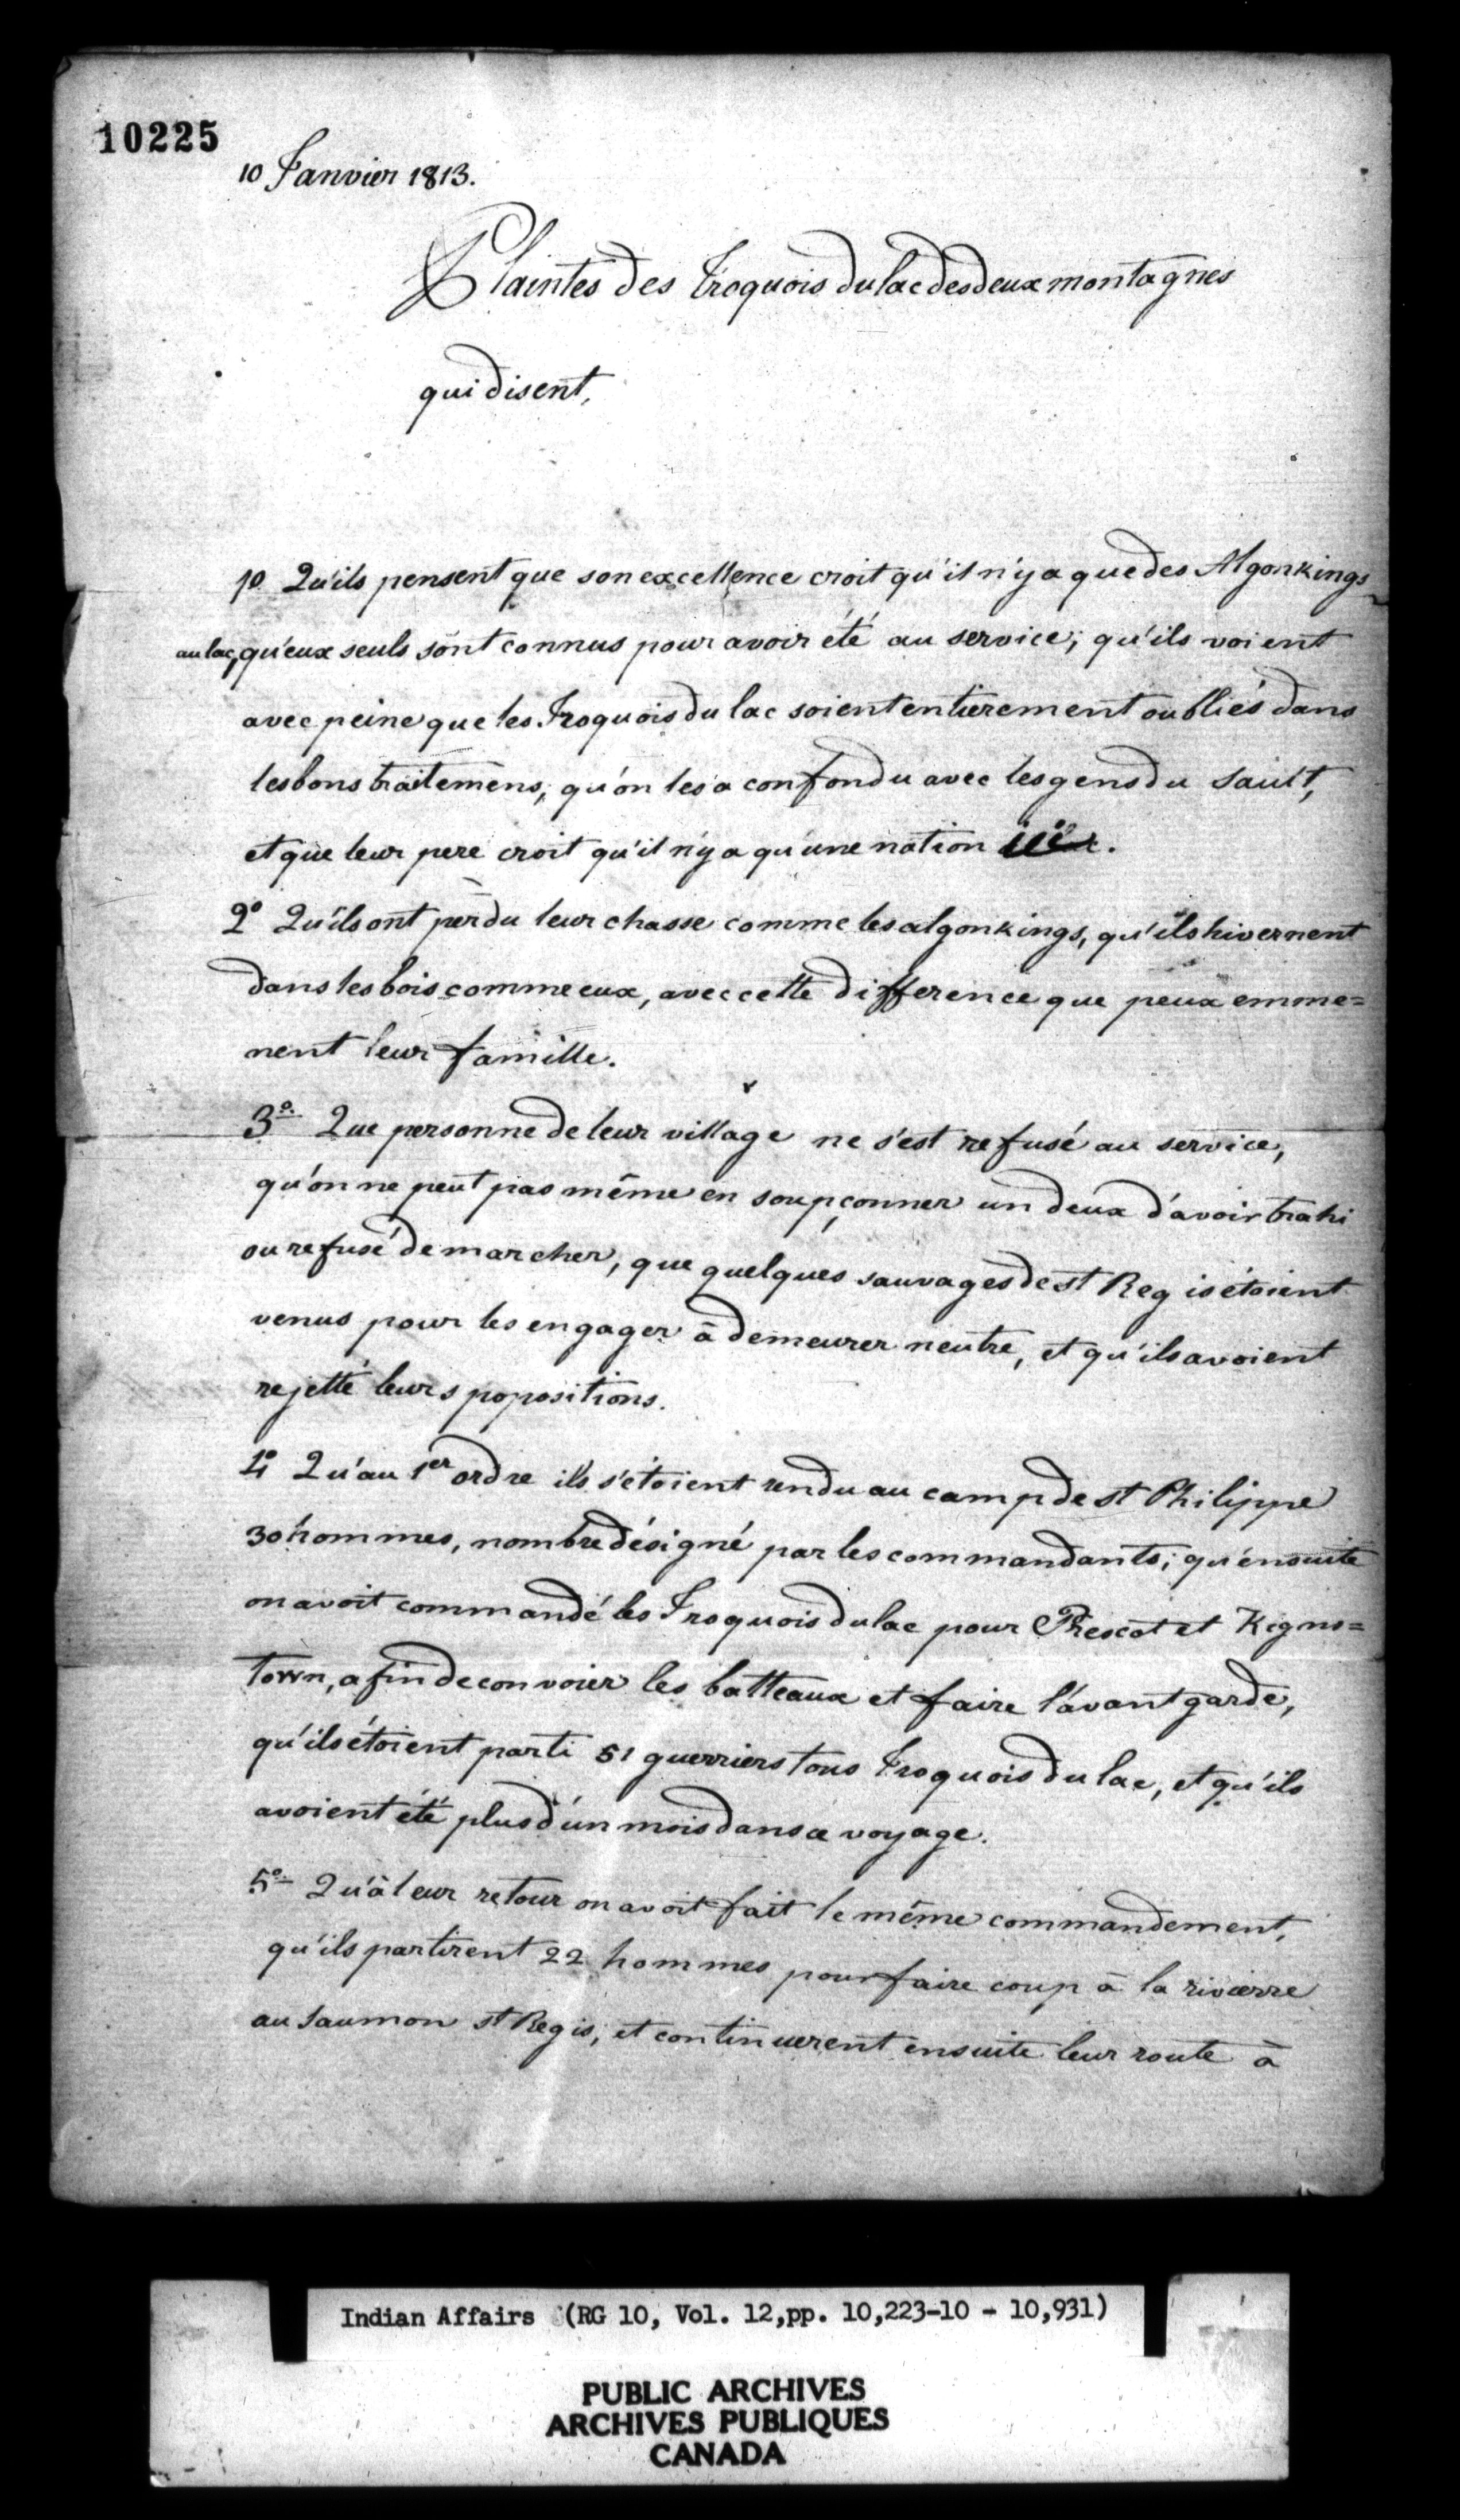 10225
10 Janvier 1813.
Plaintes des Iroquois du lac des deux montagnes
qui disent,
1º Qu'ils pensent que son excellence croit qu'il n'y a que des Algonkings
au lac, qu'eux seuls sont connus pour avoir été au service; qu'ils voient
avec peine que les Iroquois du lac soient entierement oubliés dans
les bons traitemens; qu'on les a confondu avec les gens du Sault,
et que leur pere croit qu'il n'y a qu'une nation .
2º Qu'ils ont perdu leur chasse comme les algonkings, qu'ils hivernent
dans les bois comme eux, avec cette difference que peux emme=
nent leur famille.
3º. Que personne de leur village ne s'est refusé au service,
qu'on ne peut pas même en soupçonner un deux d'avoir trahi
ou refusé de marcher, que quelques sauvages de st Regis étoient
venus pour les engager à demeurer neutre, et qu'ils avoient
rejetté leurs popositions.
4º Qu'au 1er ordre ils s'étoient rendu au camp de st Philippe
30 hommes, nombre désigné par les commandants; qu'ensuite
on avoit commandé les Iroquois du lac pour Prescot et Kigns=
town, afin de convoier les batteaux et faire l'avant garde,
qu'ils étoient parti 51 guerriers tous Iroquois du lac, et qu'ils
avoient été plus d'un mois dans ce voyage.
5º. Qu'à leur retour on avoit fait le même commandement,
qu'ils partirent 22 hommes pour faire coup à la rivierre
au Saumon st Regis; et continuerent ensuite leur route à
Indian Affairs (RG 10, Vol. 12,pp. 10,223-10 - 10,931)
PUBLIC ARCHIVES
ARCHIVES PUBLIQUES
CANADA